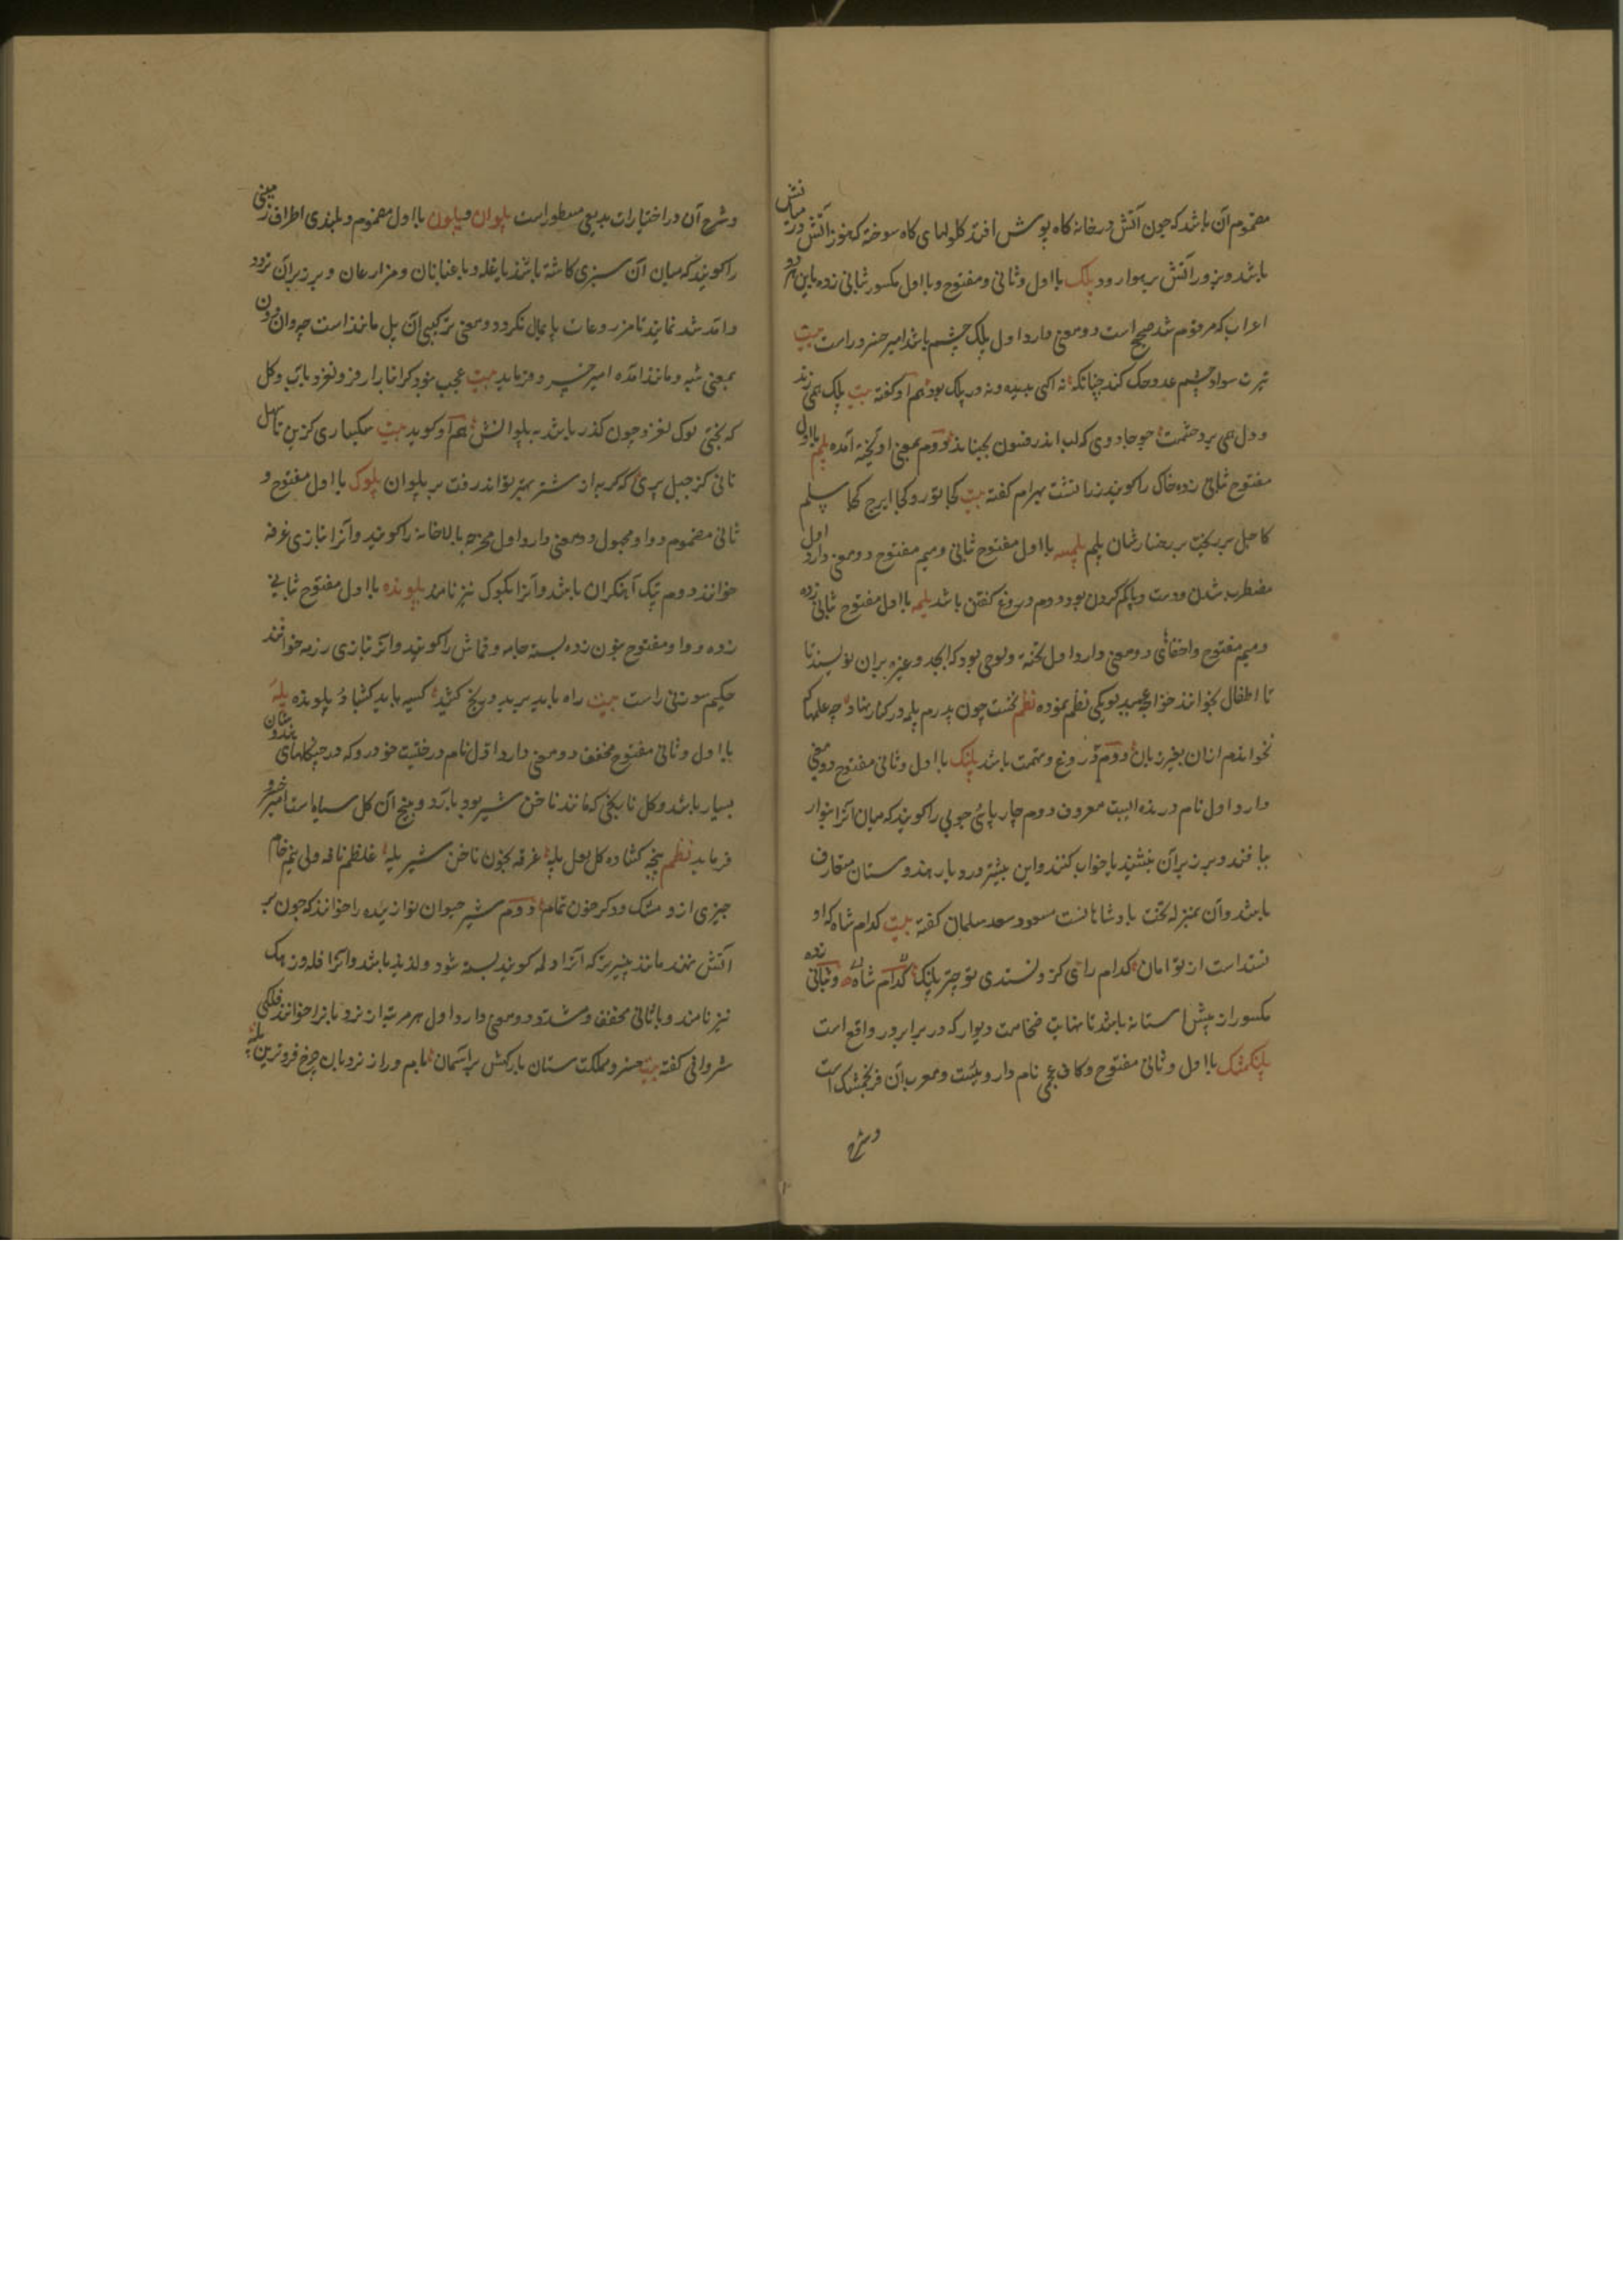 مضموم آن باشد که چون آتش در خانه کاه پوش افتد کلولهای کاه سوخته که هنوز آتش در میانش
باشد و بزور آتش بر هوا رود پلک با اول و ثانی و مفتوح و با اول مکسور بثانی زده باین هر دو
اعراب که مرقوم شد صحیح است دو معنی دارد اول پلک چشم باشد امیر خسرو راست بیت
تیرت سواد چشم عدو حک کند چنانکه نه آگهی بدیده و نه در پلک بود هم او گفته بیت پلک همی زند
و دل همی برد چشمت چو جادوی که لب اندر فسون بجنباند دوم بمعنی آویخته آمده پلم با اول
مفتوح بثانی زده خاک را گویند زراتشت بهرام گفته بیت کجا تور و کجا ایرج کجا سلم
کاجل بر ریخت بر رخسارشان پلم پلمسه با اول مفتوح ثانی و میم مفتوح دو معنی دارد اول
مضطرب شدن و دست و پا گم کردن بود دوم دروغ گفتن باشد پلمه با اول مفتوح بثانی زده
و میم مفتوح و اخفای دو معنی دارد اول تخته و لوحی بود که ابجد و غیره بران نویسند تا
تا اطفال بخوانند خواجه عمید لویکی نظم نموده نظم نخست چون پدرم پلمه در کنار نهاد چه علمها که
نخواندم ازان بغیر زبان دوم دروغ و تهمت باشد پلنک با اول و ثانی مفتوح دو معنی
دارد اول نام درنده ایست معروف دوم چارپائی چوبی را گویند که میان آنرا بنوار
ببافند و بر زبر آن بنشینند یا خواب کنند و این بیشتر در دیار هندوستان متعارف
باشد و آن بمنزله تخت بادشاهانست مسعود سعد سلمان گفته بیت کدام شاه که او
نستد است از تو امان کدام رای کز و نستدی تو چتر پلنک کدام شاه و بثانی زده
مکسور از پیش آستانه باشد تا نهایت ضخامت دیوار که در برابر در واقع است
پلنکمشک با اول و ثانی مفتوح و کاف عجمی نام داروئیست و معرب آن فرنجمشک است
و شرح
و شرح آن در اختیارات بدیعی مسطور است پلوان و پلون با اول مضموم و بلندی اطراف زمینی
را گویند که میان آن سبزی کاشته باشند یا غله و باغبانان و مزارعان و بر زبر آن تردد
و آمد شد نمایند تا مزروعات پایمال نکردد و معنی ترکیبی آن پل مانند است چه وان و ون
بمعنی شبه و مانند آمده امیر خسرو فرماید بیت عجب نبود گر انبار از فر و نغز و باب و کل
که بختی لوک لغزد چون گذر باشد به پلوانش هم او کوید بیت سکبساری کزین تا پل
ثانی کز جبل بری که کر به از شتر بهتر تواند رفت بر پلوان پلوک با اول مفتوح و
ثانی مضموم و واو مجهول دو معنی دارد اول مخرجه بالاخانه را گویند و آنرا بتازی غرفه
خوانند دوم پتک آهنکران باشد و آنرا بکوک نیز نامند پلونده با اول مفتوح بثانی
زده و واو مفتوح بنون زده بسته جامه و قماش را گویند و آنرا بتازی رزمه خوانند
حکیم سوزنی راست بیت راه باید برید و رنج کشید کیسه باید کشاد و پلونده پله
با اول و ثانی مفتوح مخفف دو معنی دارد اول نام درختیست خودرو که در جنکلهای هندوستان
بسیار باشد و کل نارنجی که مانند ناخن شیر بود بارد و بیخ آن کل سیاه است امیر خسرو
فرماید نظم پنجه کشاده کل لعل پله غرقه بخون ناخن شیر یله غلظم نافه ولی نیم خام
چیزی ازو مشک و دکر خون تمام دوم شیر حیوان نوزائیده را خوانند که چون بر
آتش نهند مانند پنیر بز که آنرا دلمه کویند بسته شود و لذیذ باشد و آنرا فله و زهک
نیز نامند و با ثانی مخفف و مشدد دو معنی دارد اول هر مرتبه از نردبان را خوانند فلکی
شروانی گفته بیت خسرو مملکت ستان بارکهش بر آسمان بام ورا ز نردبان چرخ فروترین پله